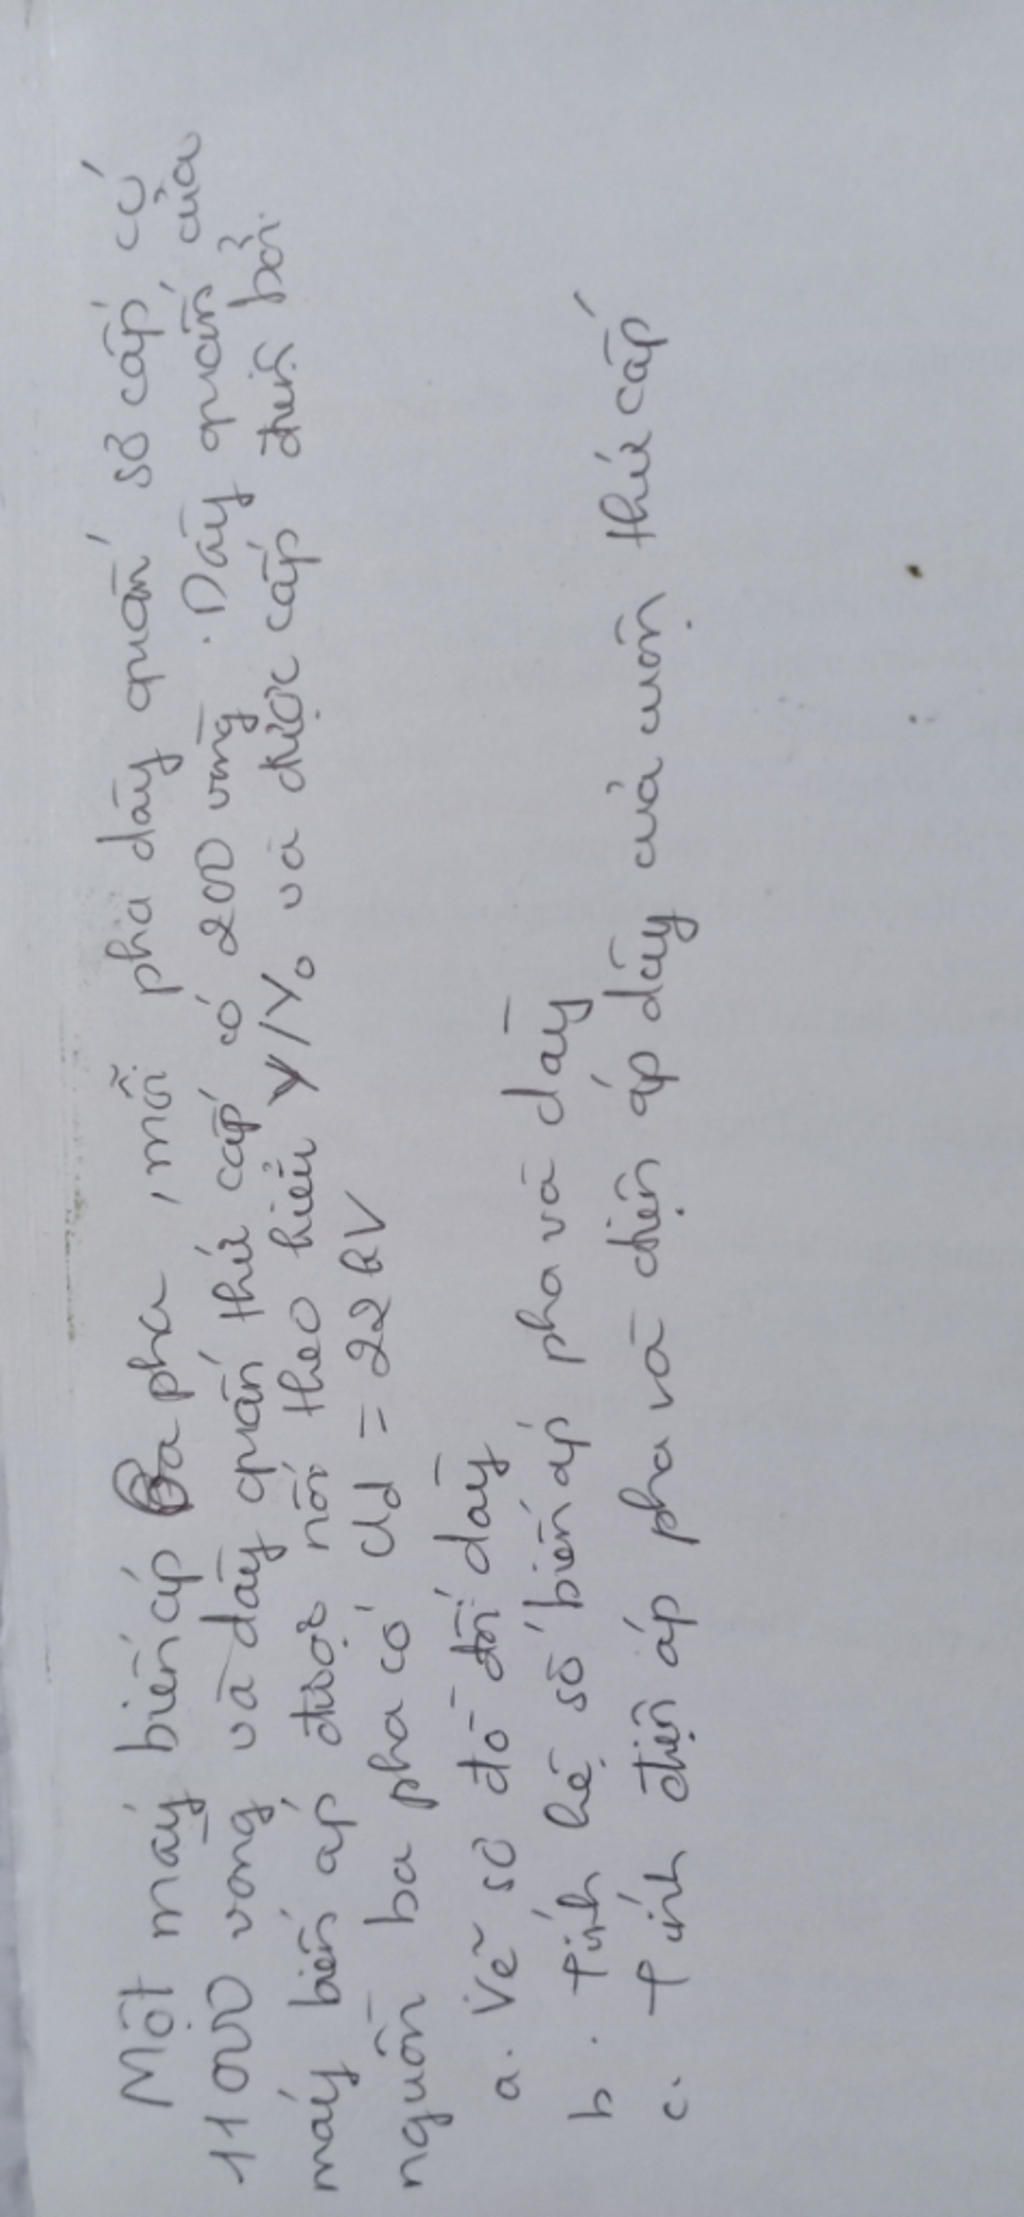 Một máy biến áp ba pha, mỗi pha dây quấn sơ cấp có
11000 vòng và dây quấn thứ cấp có 200 vòng. Dây quấn của
máy biến áp được nối theo kiểu Y/Yo và được cấp điện bởi
nguồn ba pha có Ud = 22kV
a. Vẽ sơ đồ đối dây
b. Tính hệ số biến áp pha và dây
c. Tính điện áp pha và điện áp dây của cuộn thứ cấp